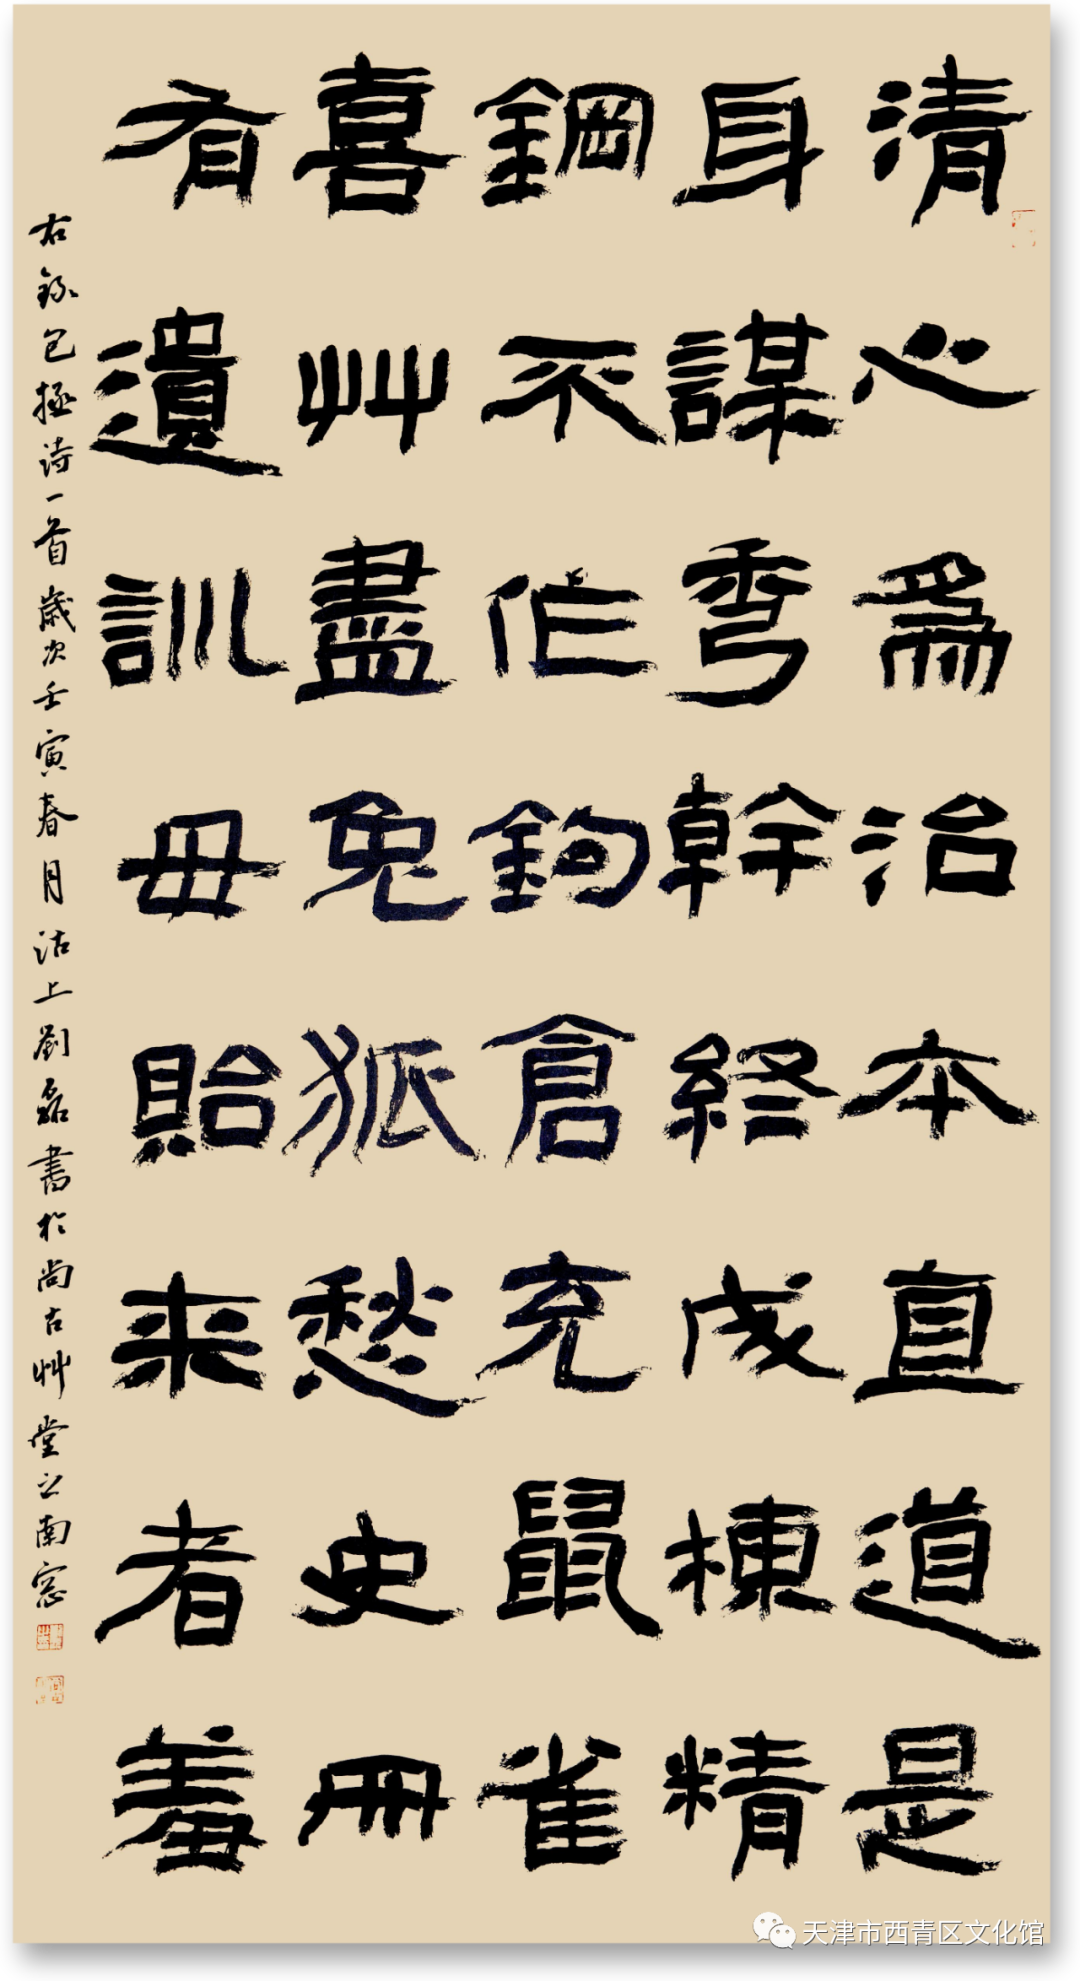 清心爲治本直道是
身謀秀幹終成棟精
鋼不作鉤倉充鼠雀
喜艸盡兔狐愁史冊
有遺訓毋貽来者羞
右錄包拯诗一首歲次壬寅春月沽上劉磊書於尚古艸堂之南窓
天津市西青区文化馆